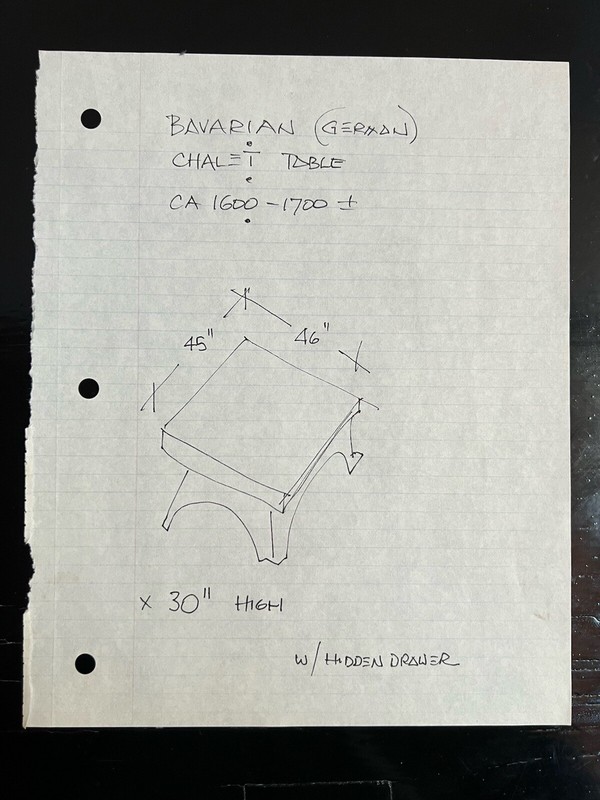 BAVARIAN (GERMAN)
CHALET TABLE
CA 1600-1700 ±
45" 46"
x 30" HIGH
W/ HIDDEN DRAWER